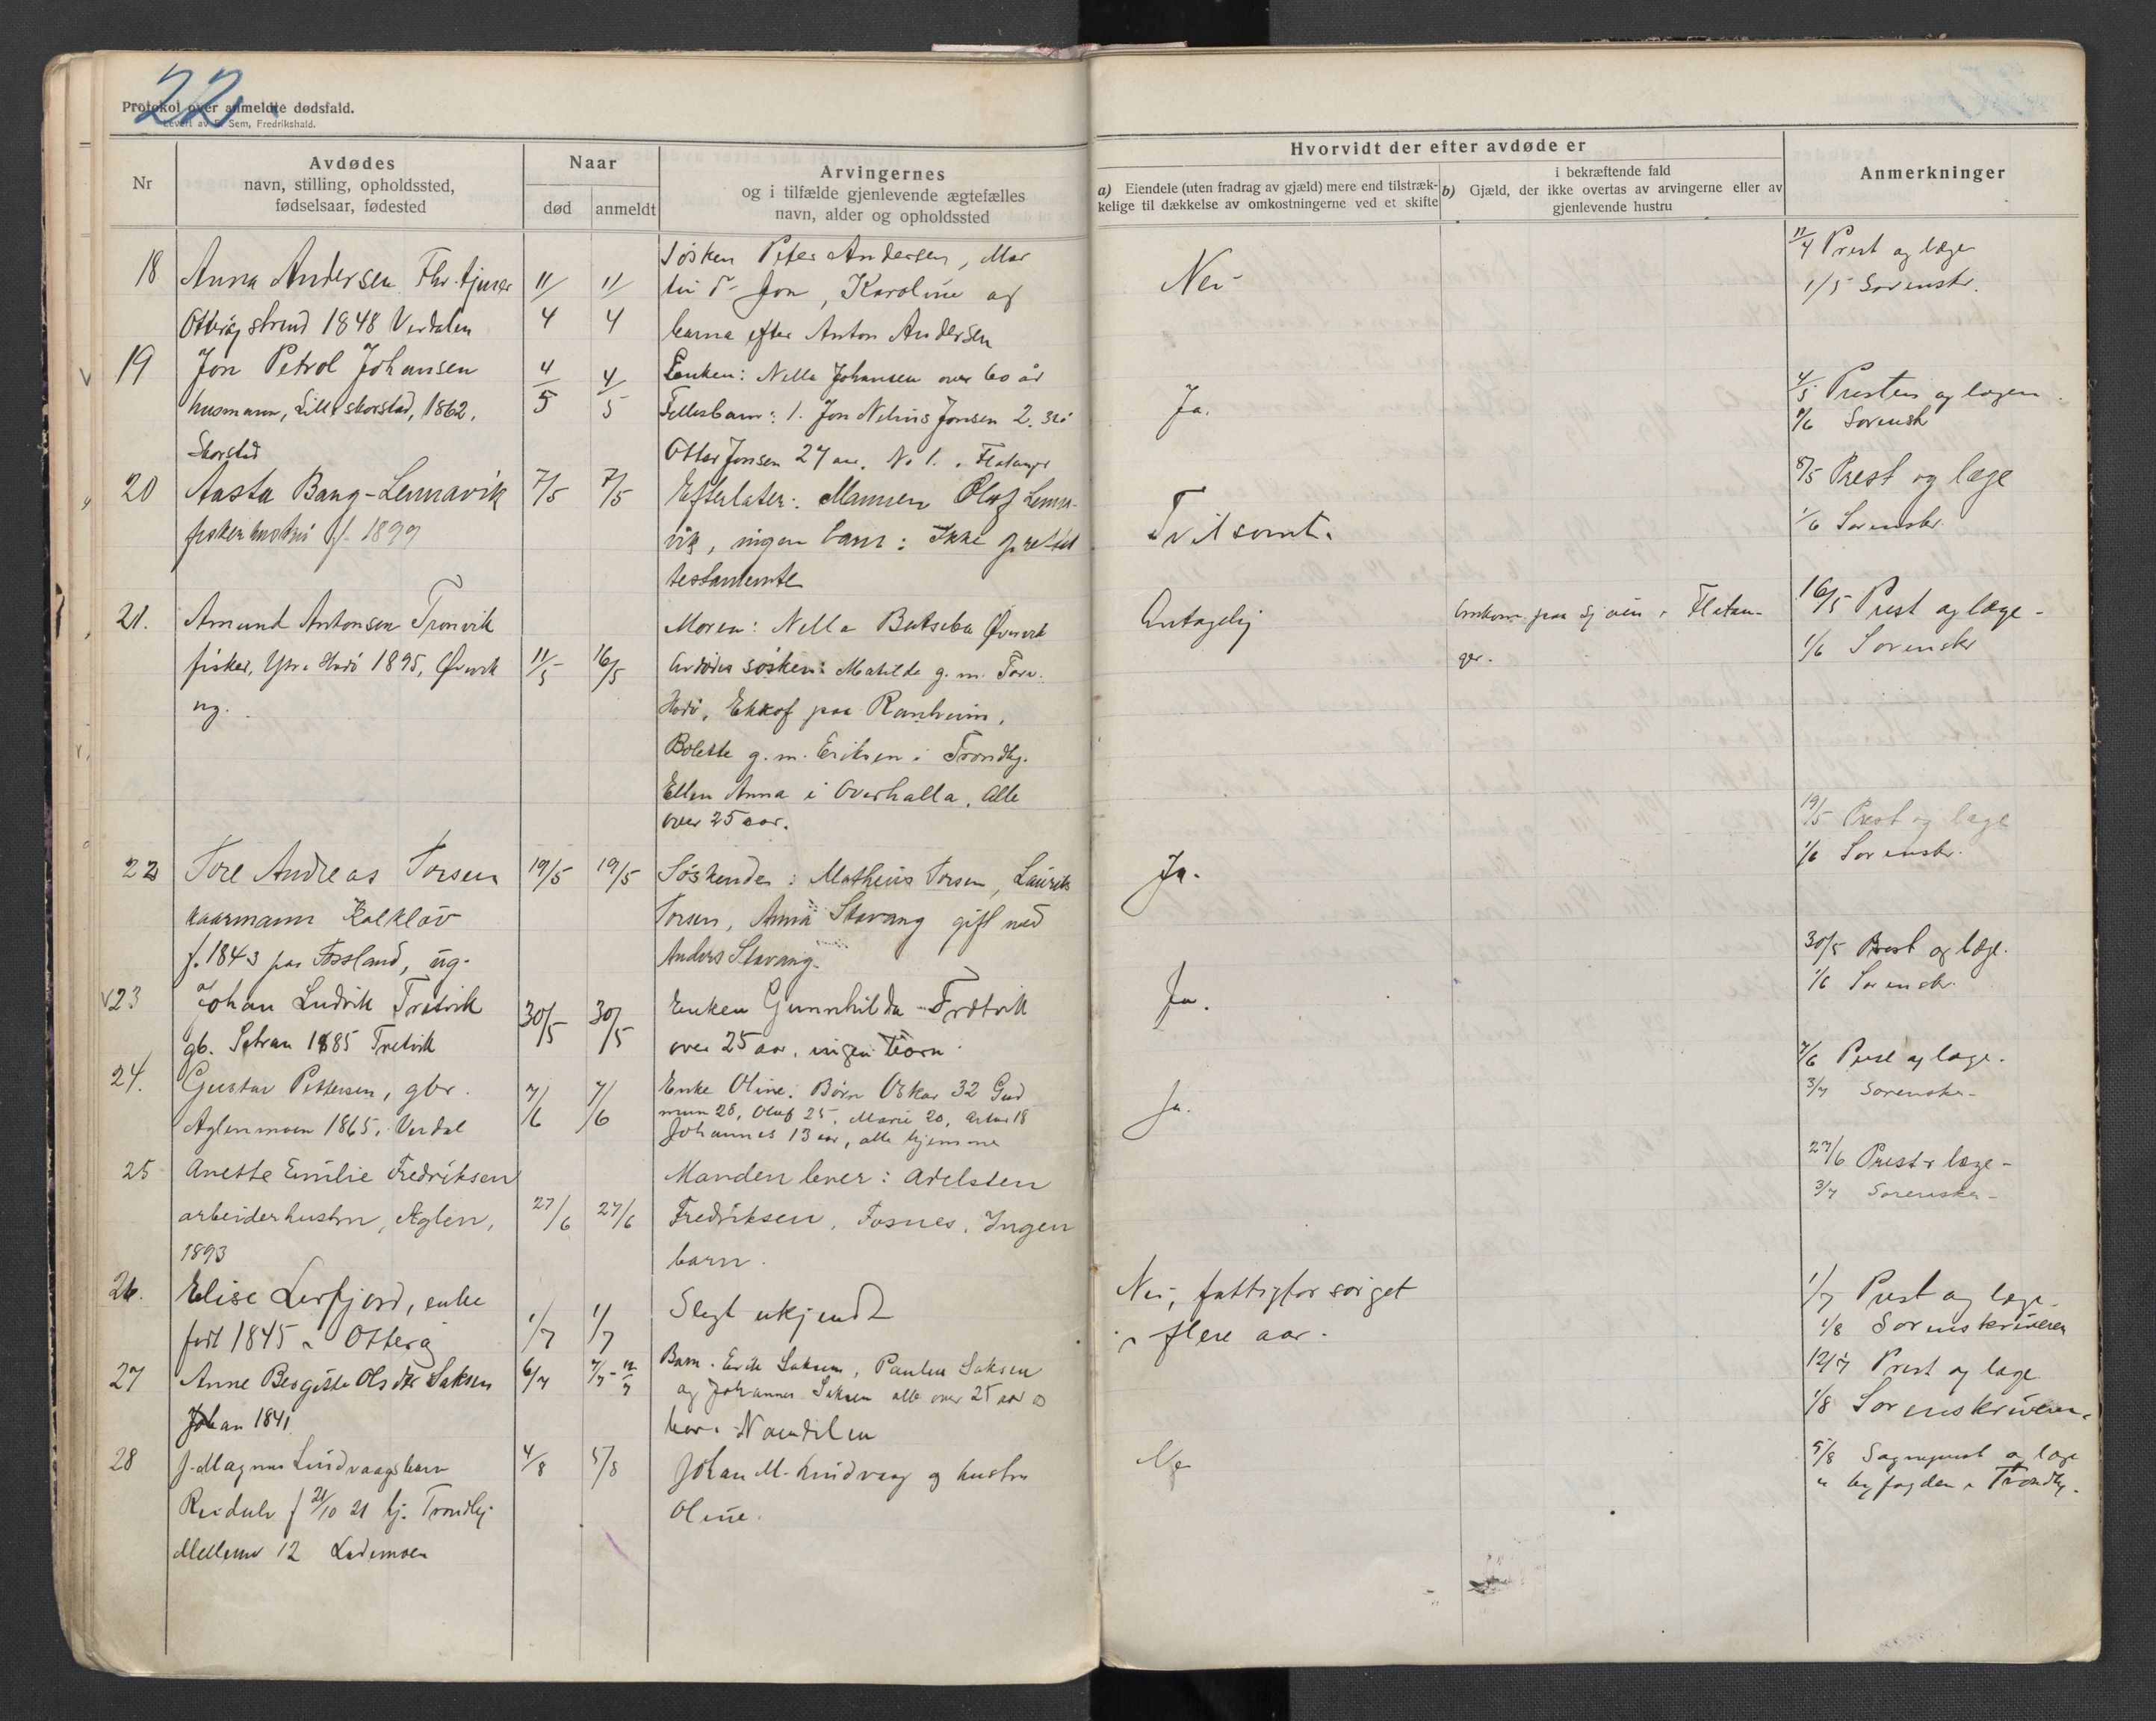 22.
Protokol over anmeldte dødsfald.
Levert av E. Sem, Fredrikshald.
Nr
Avdødes
navn, stilling, opholdssted,
fødselsaar, fødested
Naar
død
anmeldt
Arvingernes
og i tilfælde gjenlevende ægtefælles
navn, alder og opholdssted
Hvorvidt der efter avdøde er
a) Eiendele (uten fradrag av gjæld) mere end tilstræk-
kelige til dækkelse av omkostningerne ved et skifte
i bekræftende fald
b) Gjæld, der ikke overtas av arvingerne eller av
gjenlevende hustru
Anmerkninger
18 Anna Andersen Fhv. tjener
1848 Verdalen
11/4
11/4
Søsken Peter Andersen, Mar
tin Jon, Karoline og
barna efter Anton Andersen
Nei
11/4 Prest og læge
1/5 Sorenskr.
19 Jon Petrol Johansen
husmann, Lille skorstad, 1862.
Skorstad
4/5
4/5
Enken: Nella Johansen over 60 år
Fellesbarn: 1. Jon Nelius Jonsen 2.
Otter Jonsen 27 aar. No 1. i Flatanger
Ja.
4/5 Presten og lægen
1/6 Sorensk
20 Aasta Bang-Lennavik
fiskerhustru f. 1899
7/5
7/5
Efterlater: Mannen Olaf Lenna-
vik, ingen barn: Ikke oprettet
testamente
Tvilsomt.
8/5 Prest og læge
1/6 Sorenskr.
21. Amund Antonsen Tronvik
fisker, Hodø 1895, Øvervik
ug.
11/5
16/5
Moren: Nella Batseba Øvervik
Avdødes søsken: Matilde g. m. Tore
Hodø, Ekkof paa Ranheim,
Bolette g. m. Eriksen i Trondhj.
Ellen Anna i Overhalla. Alle
over 25 aar.
Antagelig
Omkom paa sjøen i Flatan-
ger.
16/5 Prest og læge -
1/6 Sorenskr
22 Tore Andreas Torsen
kaarmann Kalkløv
f. 1843 paa Fossland, ug.
19/5
19/5
Søskende: Matheus Torsen, Laurits
Torsen, Anna Stavang gift med
Anders Stavang.
Ja.
19/5 Prest og læge
1/6 Sorenskr.
23 Johan Ludvik Tretvik
gb. Setran 1885 Tretvik
30/5
30/5
Enken Gunnhilda Tretvik
over 25 aar, ingen børn
Ja.
30/5 Prest og læge.
1/6 Sorenskr.
24. Gustav Pettersen, gbr.
Aglenmoen 1865. Verdal
7/6
7/6
Enke Oline. Børn Oskar 32 Gud
mun 28, Oluf 25, Marie 20, Artur 18
Johannes 13 aar, alle hjemme
Ja.
7/6 Prest og læge.
3/7 Sorenskr-
25 Anette Emilie Fredriksen
arbeiderhustru, Aglen,
1893
27/6
27/6
Manden lever: Adelsten
Fredriksen, Fosnes. Ingen
barn.
27/6 Prest & læge -
3/7 Sorenskr-
26. Elise Lerfjord, enke
født 1845 i Otterøy
1/7
1/7
Slegt ukjendt
Nei, fattigforsørget
i flere aar.
1/7 Prest og læge
1/8 Sorenskriveren
27 Anne Bergitte Olsdtr Saksen
1841
6/7
Barn. Erik Saksen, Paulus Saksen
og Johannes Saksen alle over 25 aar
bor i Namdalen
12/7 Prest og læge
1/8 Sorenskriveren.
28 J. Magnus Lindvaags barn
Reidulv f 21/10 21 hj. Trondhj
Mellemv 12 Lademoen
4/8
5/8
Johan M. Lindvaag og hustru
Oline.
Nei
5/8 Sogneprest og læge
byfogden i Trondhj.